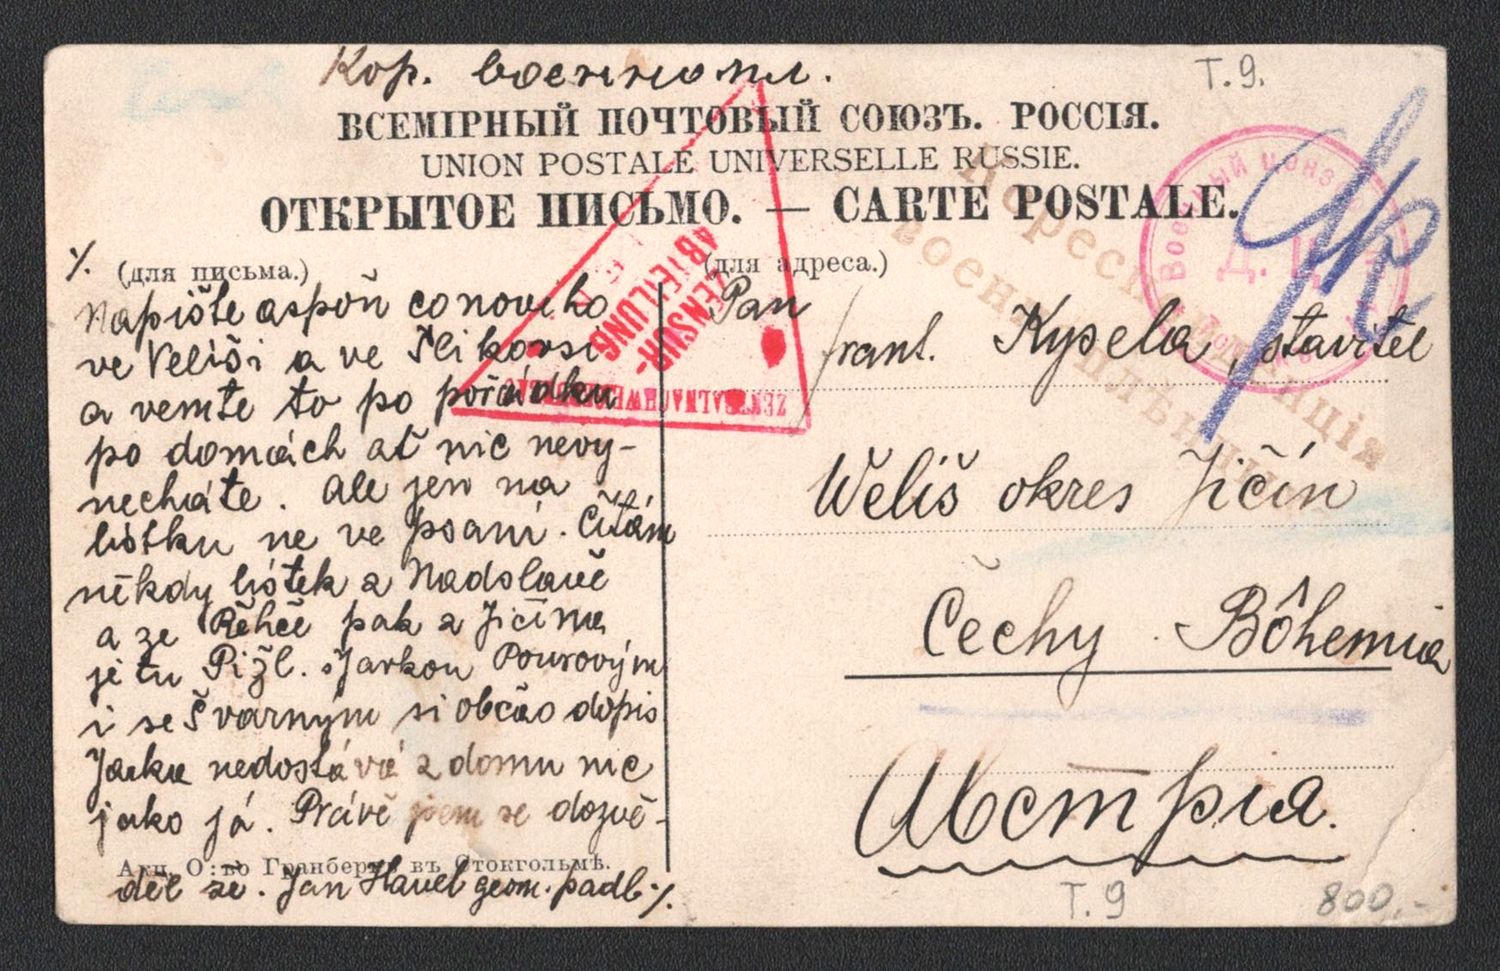 Кор. военнопл.
Т.9.
ВСЕМІРНЫЙ ПОЧТОВЫЙ СОЮЗЪ. РОССІЯ.
UNION POSTALE UNIVERSELLE RUSSIE.
ОТКРЫТОЕ ПИСЬМО. — CARTE POSTALE.
(для письма.)
(для адреса.)
·/.
Napište aspoň co noveho
ve Veliši a ve Šlikovsi
a vemte to po pořádku
po domách ať nic nevy-
necháte. Ale jen na
lístku ne ve psani. Čítám
někdy lístek z Nadslavě
a ze Řehče pak z Jičína
je tu Pižl. s Jarkou Pourovým
i se Švarným si občas dopis
Jarka nedostává z domu nic
jako já. Právě jsem se dozvě-
děl že. Jan Havel geom. padl ·/.
Акц. О:во Гранбергъ въ Стокгольмѣ.
Pan
Frant. Kypela, stavitel
Weliš okres Jičín
Čechy Bôhemia
Австрія.
Т.9
800,-
ZENSUR-
ABTEILUNG
ZENTRALNACHWEISE
Военный цензоръ
Д. Ц.
Корреспонденція
военноплѣнныхъ